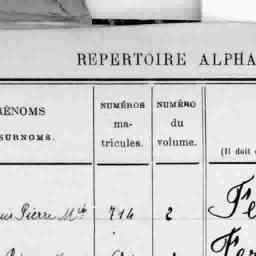 REPERTOIRE ALPHA
RÉNOMS
SURNOMS.
NUMÉROS
ma-
tricules.
NUMÉRO
du
volume.
(Il doit
Pierre M 714 2 Fe
Fer